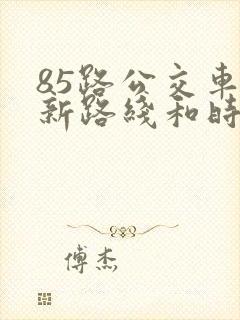 85路公交車
新路綫和時
傅杰